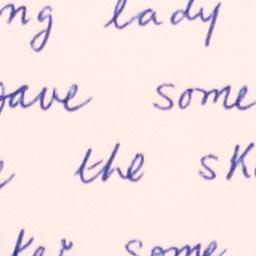 ng lady
gave some
the sk
ker some